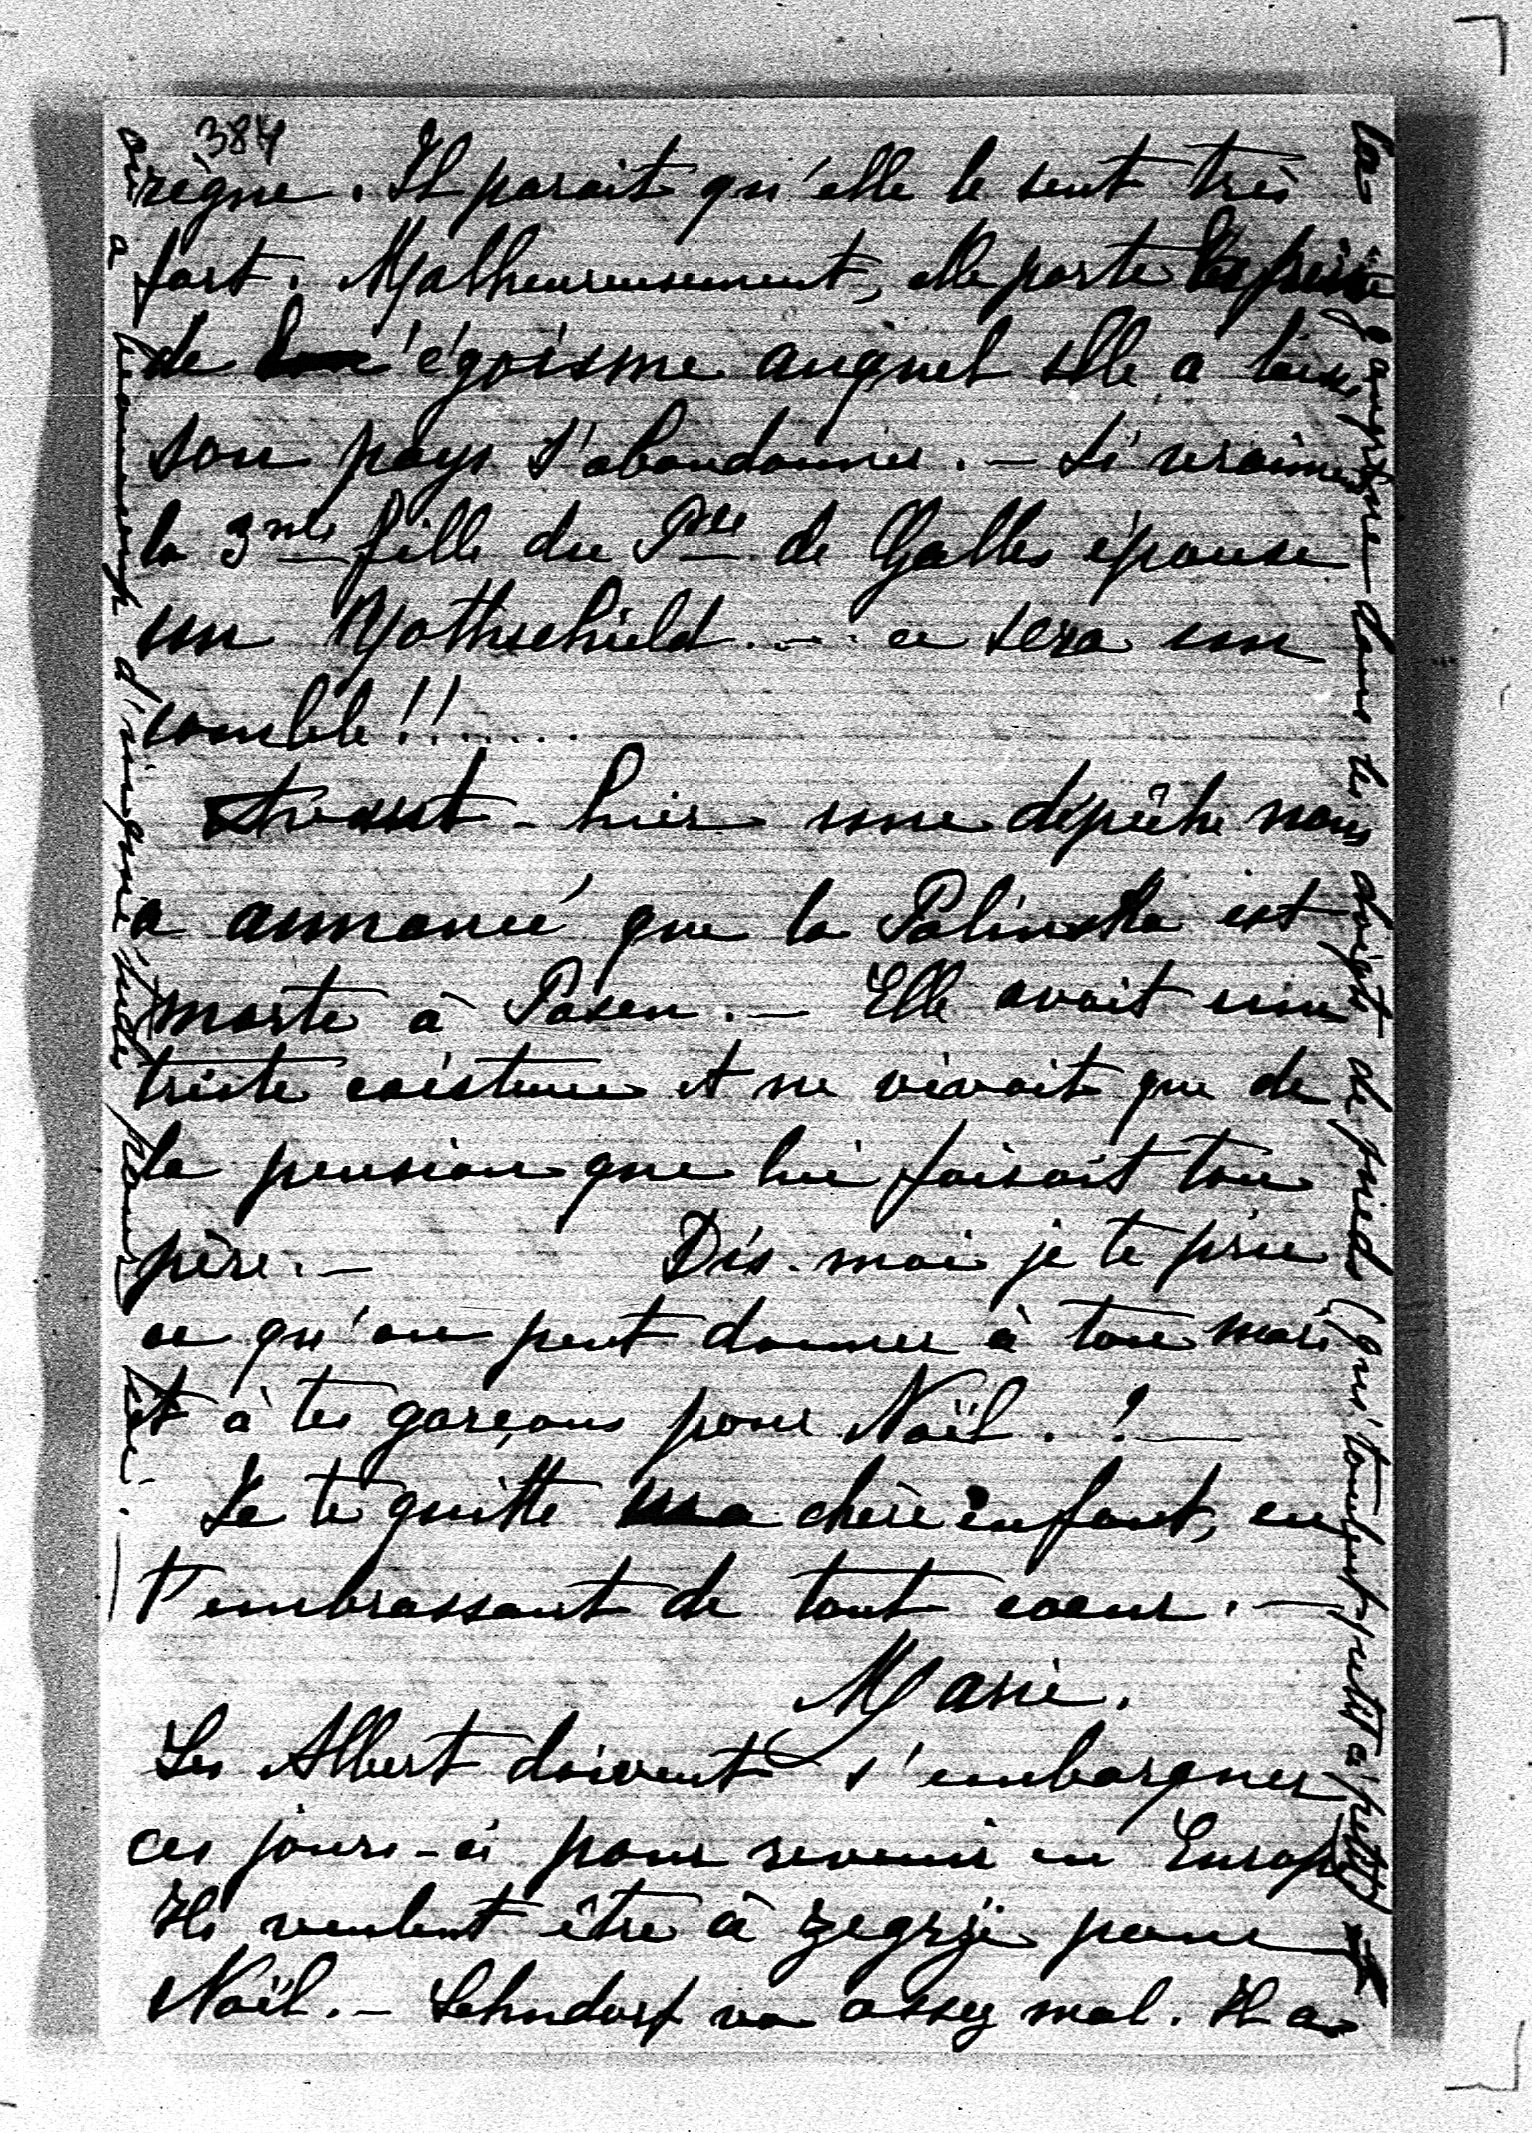 384
règne. Il parait qu'elle le sent très
fort. Malheureusement, elle porte la peine
de l'égoïsme auquel elle a laissé
son pays s'abandonner. — Si vraiment
la 3me fille du Pce de Galles épouse
un Rothschild... ce sera un
comble!!......
hier une dépêche nous
a annoncé que la Palinska est
morte à Posen. — Elle avait une
triste existence et ne vivait que de
la pension que lui faisait ton
père. — Dis-moi je te prie
ce qu'on peut donner à ton mari
et à tes garçons pour Noël. ! —
Je te quitte ma chère enfant, en
t'embrassant de tout coeur. —
Marie.
Les Albert doivent s'embarquer
ces jours-ci pour revenir en Europe
Ils veulent être à Zegrze pour
Noël. — Lehndorf va assez mal. Il a
la gangrène dans les doigts de pied (qui tombent petit à petit) et
on a beaucoup d'inquiétude pour lui. —